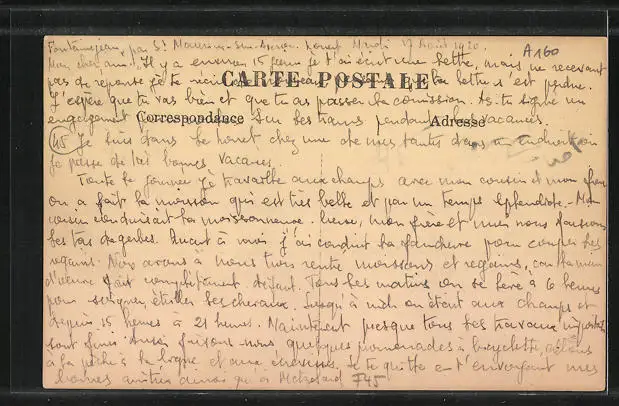 Fontainejean, par St Maurice-sur-Aveyron, Loiret Mardi 17 Août 1920.
A160
Mon cher ami. Il y a environ 15 jours je t'ai écrit une lettre, mais ne recevant
pas de réponse je te récris la lettre s'est perdue.
CARTE POSTALE
J'espère que tu vas bien et que tu as passer la comission. As-tu signé un
engagement Sur les trams pendant les vacances.
Correspondance
Adresse
45 Je suis dans le Loiret chez une de mes tantes dans un endroit où
je passe de très bonnes vacances.
Toute la journée je travaille aux champs avec mon cousin et mon frère
on a fait la moisson qui est très belle et par un temps splendide. Mon
cousin conduisait la moissonneuse-lieuse, mon frère et nous faisions
les tas de gerbes. Quant à moi j'ai conduit la faucheuse pour couper les
regains. Nous avons à nous trois rentré moissons et regains, car la main
d'œuvre fait complètement défaut. Tous les matins on se lève à 6 heures
pour soigner, étriller les chevaux. Jusqu'à midi on était aux champs et
depuis 15 heures à 21 heures. Maintenant presque tous les travaux importants
sont finis. Aussi faisons-nous quelques promenades à bicyclette, allons
à la pêche à la ligne et aux écrevisses. Je te quitte en t'envoyant mes
bonnes amitiés ainsi qu'à 745